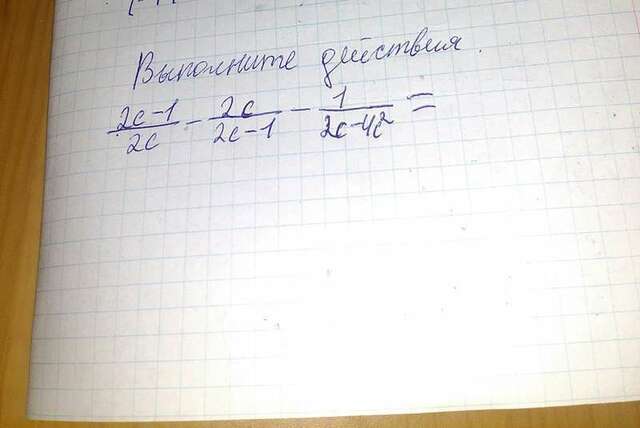 Выполните действия.
\frac{2c-1}{2c} - \frac{2c}{2c-1} - \frac{1}{2c-4c^2} =